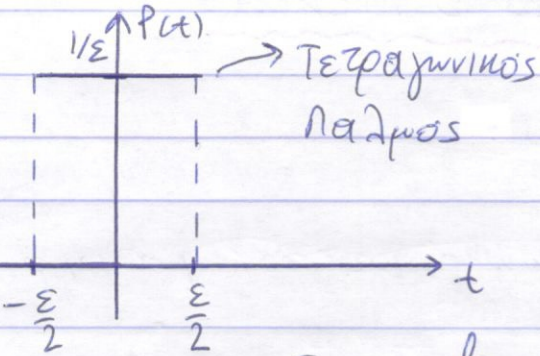 1/ε P(t)
Τετραγωνικός
Παλμός
t
-ε/2 ε/2